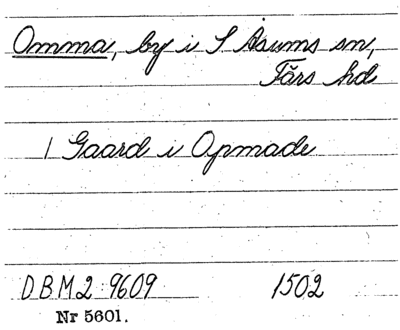 Omma, by i S Åsums sn,
Färs hd
1 Gaard i Opmade
DBM2 9609 1502
Nr 5601.